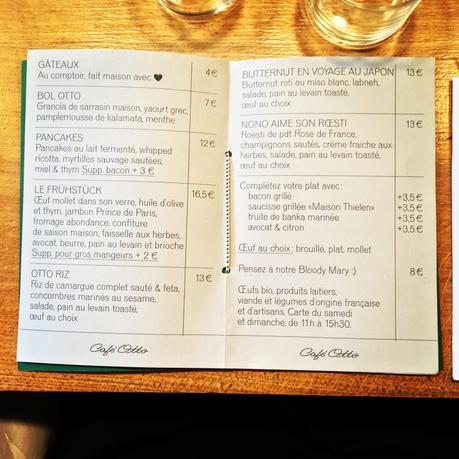 GÂTEAUX 4 €
Au comptoir, fait maison avec ♥
BOL OTTO 7 €
Granola de sarrasin maison, yaourt grec,
pamplemousse de kalamata, menthe
PANCAKES 12 €
Pancakes au lait fermenté, whipped
ricotta, myrtilles sauvage sautées,
miel & thym Supp. bacon + 3 €
LE FRÜHSTÜCK 16,5 €
Œuf mollet dans son verre, huile d'olive
et thym, jambon Prince de Paris,
fromage abondance, confiture
de saison maison, faisselle aux herbes,
avocat, beurre, pain au levain et brioche
Supp. pour gros mangeurs + 2 €
OTTO RIZ 13 €
Riz de camargue complet sauté & feta,
concombres marinés au sesame,
salade, pain au levain toasté,
œuf au choix
Café Otto
BUTTERNUT EN VOYAGE AU JAPON 13 €
Butternut roti au miso blanc, labneh,
salade, pain au levain toasté,
œuf au choix
NONO AIME SON RŒSTI 13 €
Roesti de pdt Rose de France,
champignons sautés, crème fraiche aux
herbes, salade, pain au levain toasté,
œuf au choix
Complétez votre plat avec :
bacon grillé +3,5 €
saucisse grillée «Maison Thielen» +3,5 €
truite de banka marinée +3,5 €
avocat & citron +3,5 €
Œuf au choix : brouillé, plat, mollet
Pensez à notre Bloody Mary :) 8 €
Œufs bio, produits laitiers,
viande et légumes d'origine française
et d'artisans. Carte du samedi
et dimanche, de 11h à 15h30.
Café Otto